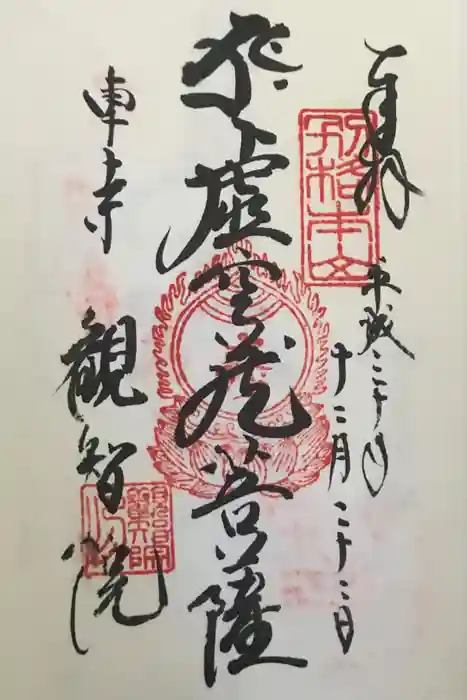 奉拝
別格本山
平成二十年
十二月二十二日
虚空蔵菩薩
東寺
觀智院